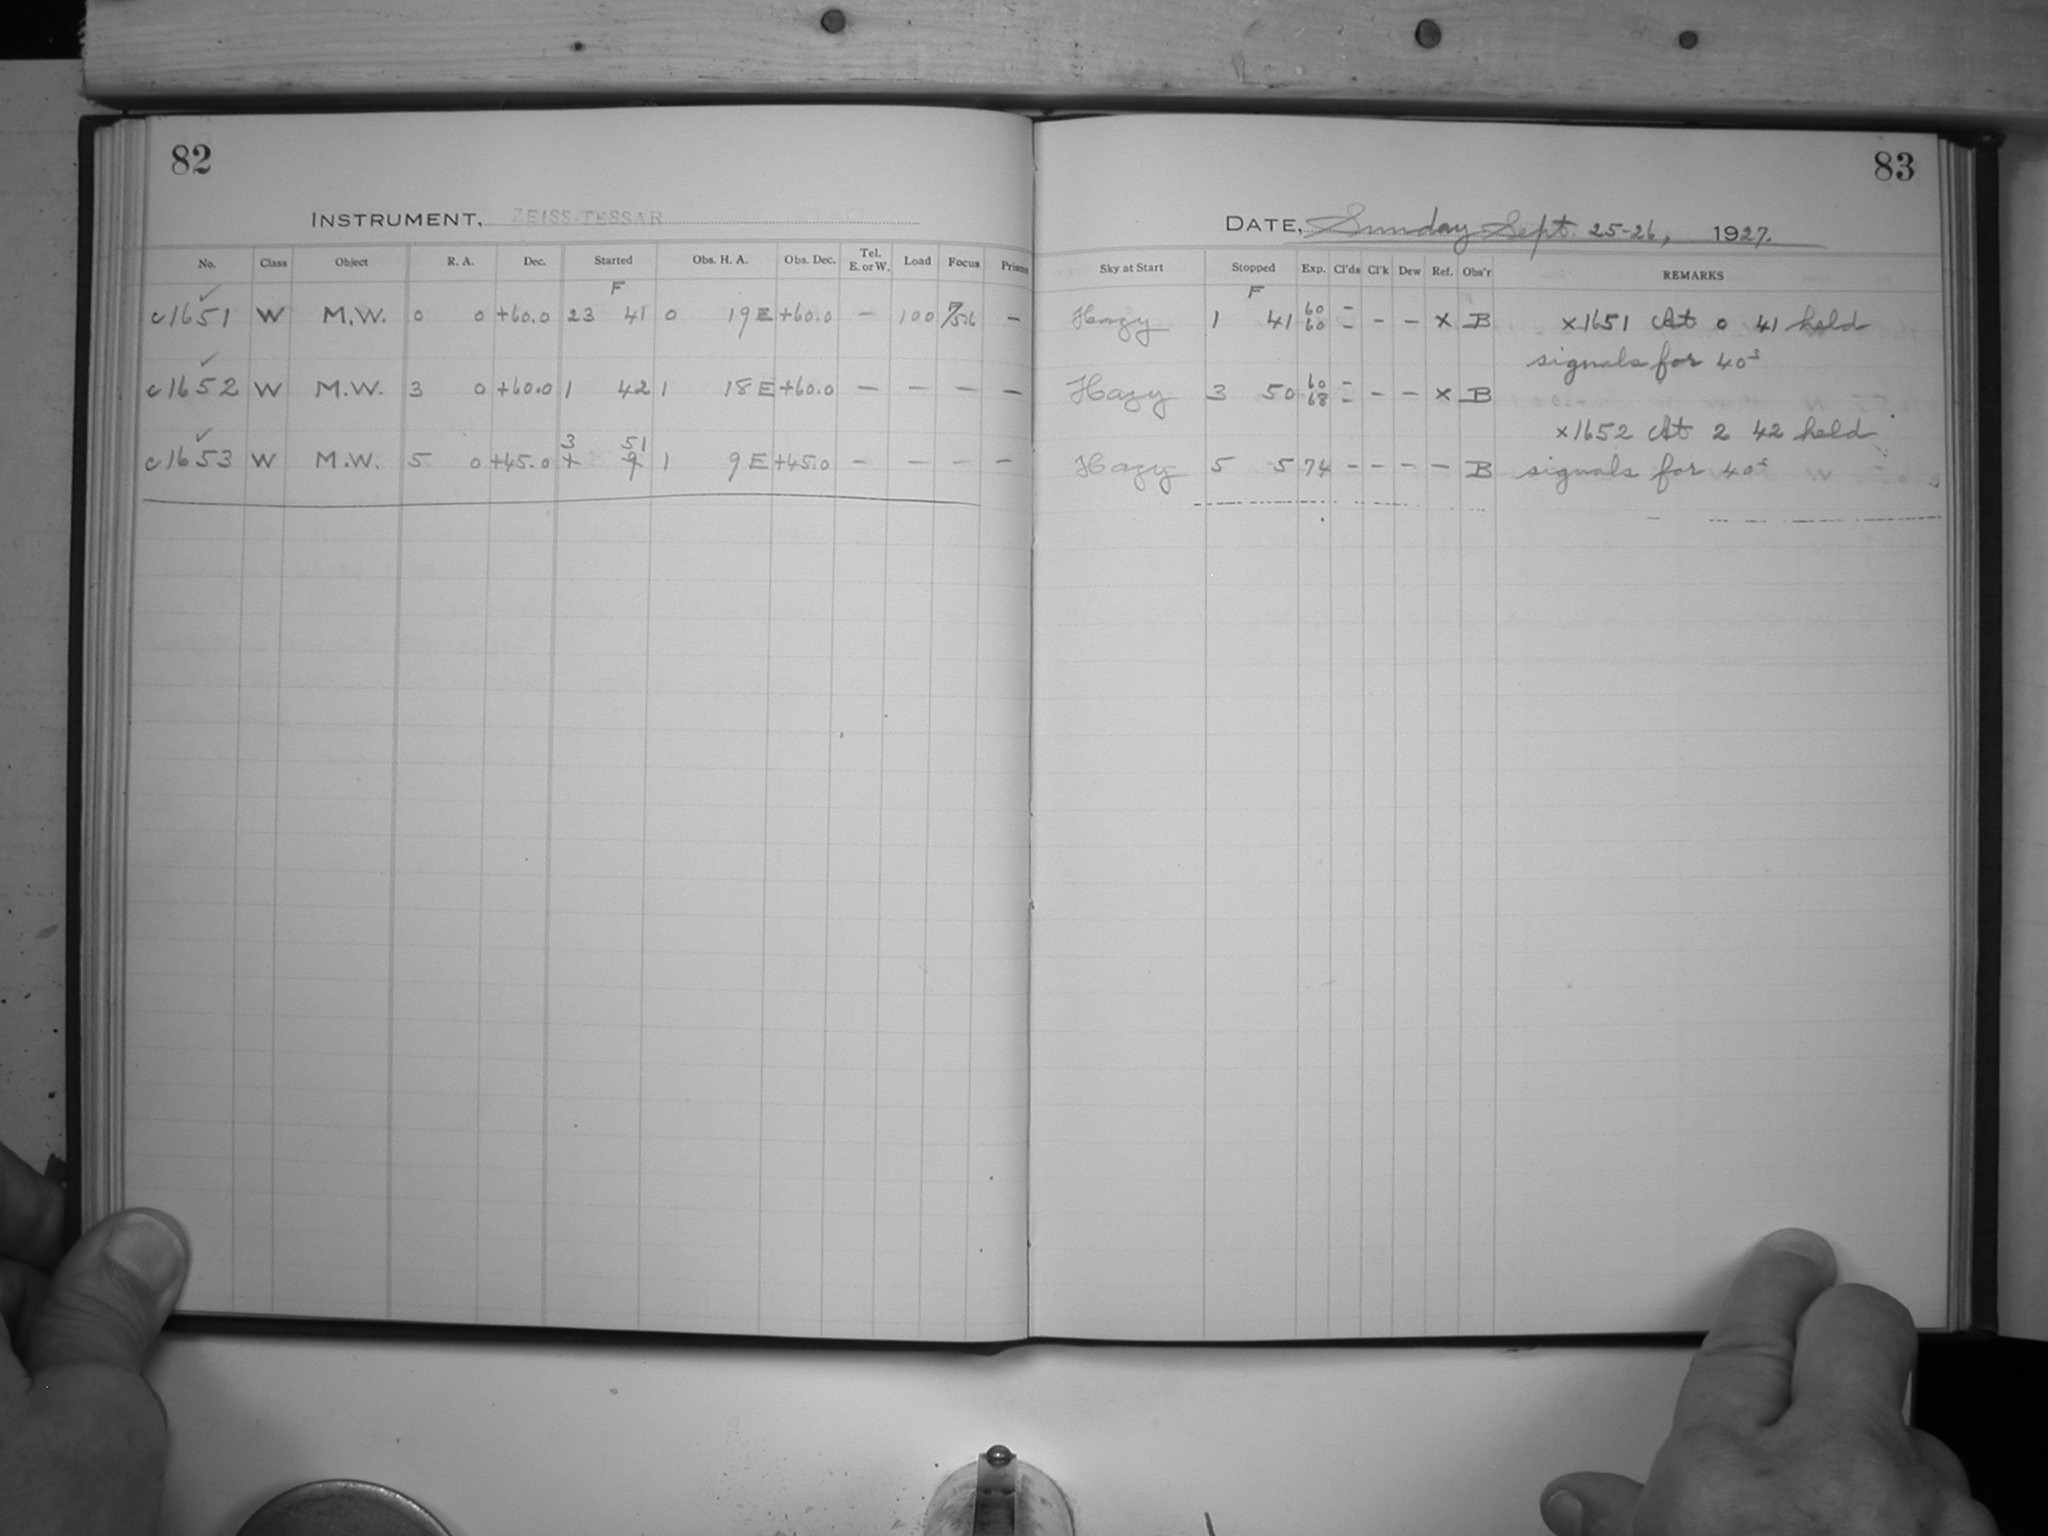 82
INSTRUMENT, ZEISS-TESSAR
No. Class Object R. A. Dec. Started Obs. H. A. Obs. Dec. Tel. E. or W. Load Focus Prism
F
c1651 W M.W. 0 0 +60.0 23 41 0 19 E +60.0 — 100 F/5.6 —
c1652 W M.W. 3 0 +60.0 1 42 1 18 E +60.0 — — — —
3 51
c1653 W M.W. 5 0 +45.0 4 9 1 9 E +45.0 — — — —
83
DATE, Sunday Sept. 25-26, 1927.
Sky at Start Stopped Exp. Cl'ds Cl'k Dew Ref. Obs'r REMARKS
F
Hazy 1 41 60 60 – – – – x B x1651 At 0 41 held
signals for 40s
Hazy 3 50 60 68 – – – – x B
x1652 At 2 42 held
Hazy 5 5 74 – – – – B signals for 40s